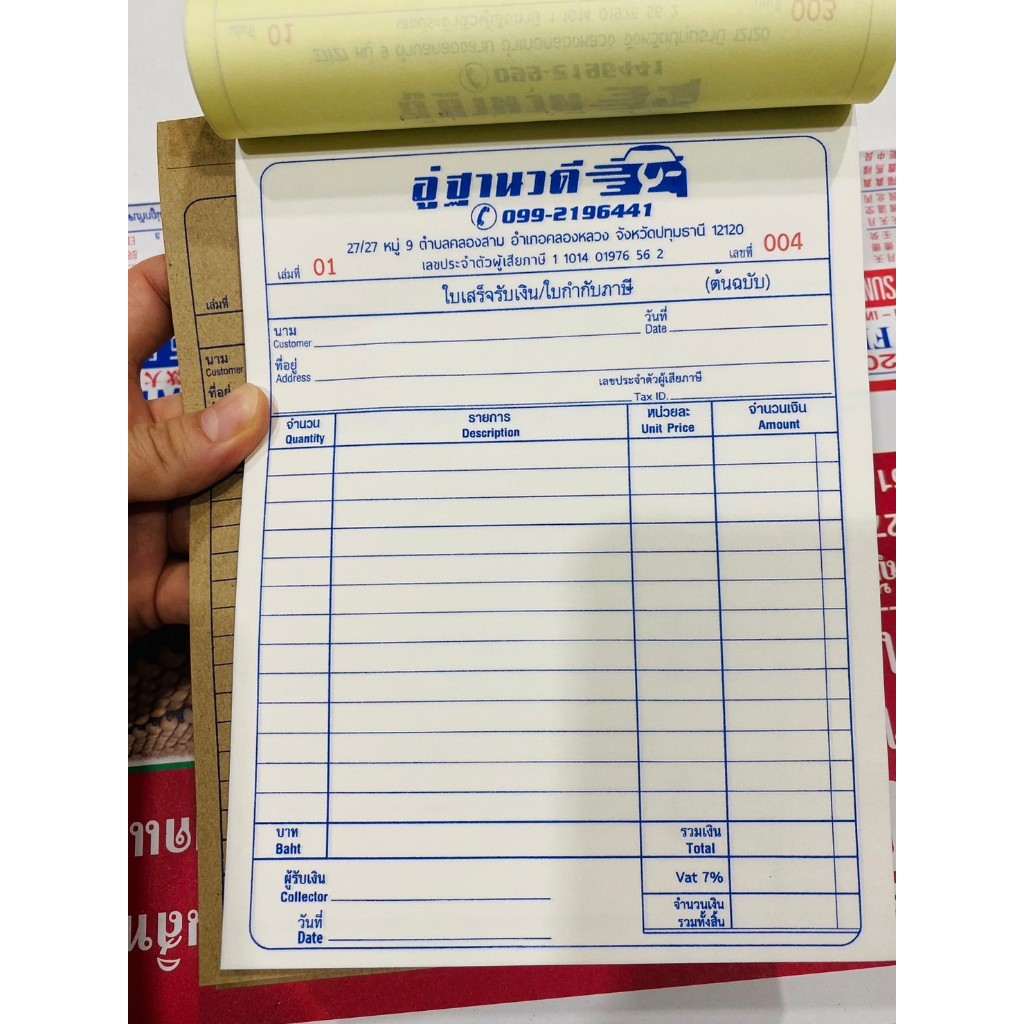 01
003
099-2196441
อู่ฐานวดี
099-2196441
27/27 หมู่ 9 ตำบลคลองสาม อำเภอคลองหลวง จังหวัดปทุมธานี 12120
เลขประจำตัวผู้เสียภาษี 1 1014 01976 56 2
เล่มที่ 01
เลขที่ 004
ใบเสร็จรับเงิน/ใบกำกับภาษี (ต้นฉบับ)
นาม
Customer
วันที่
Date
ที่อยู่
Address
เลขประจำตัวผู้เสียภาษี
Tax ID.
จำนวน รายการ หน่วยละ จำนวนเงิน
Quantity Description Unit Price Amount
บาท รวมเงิน
Baht Total
Vat 7%
ผู้รับเงิน
Collector
จำนวนเงิน
รวมทั้งสิ้น
วันที่
Date
เล่มที่
นาม
Customer
ที่อยู่
SUN